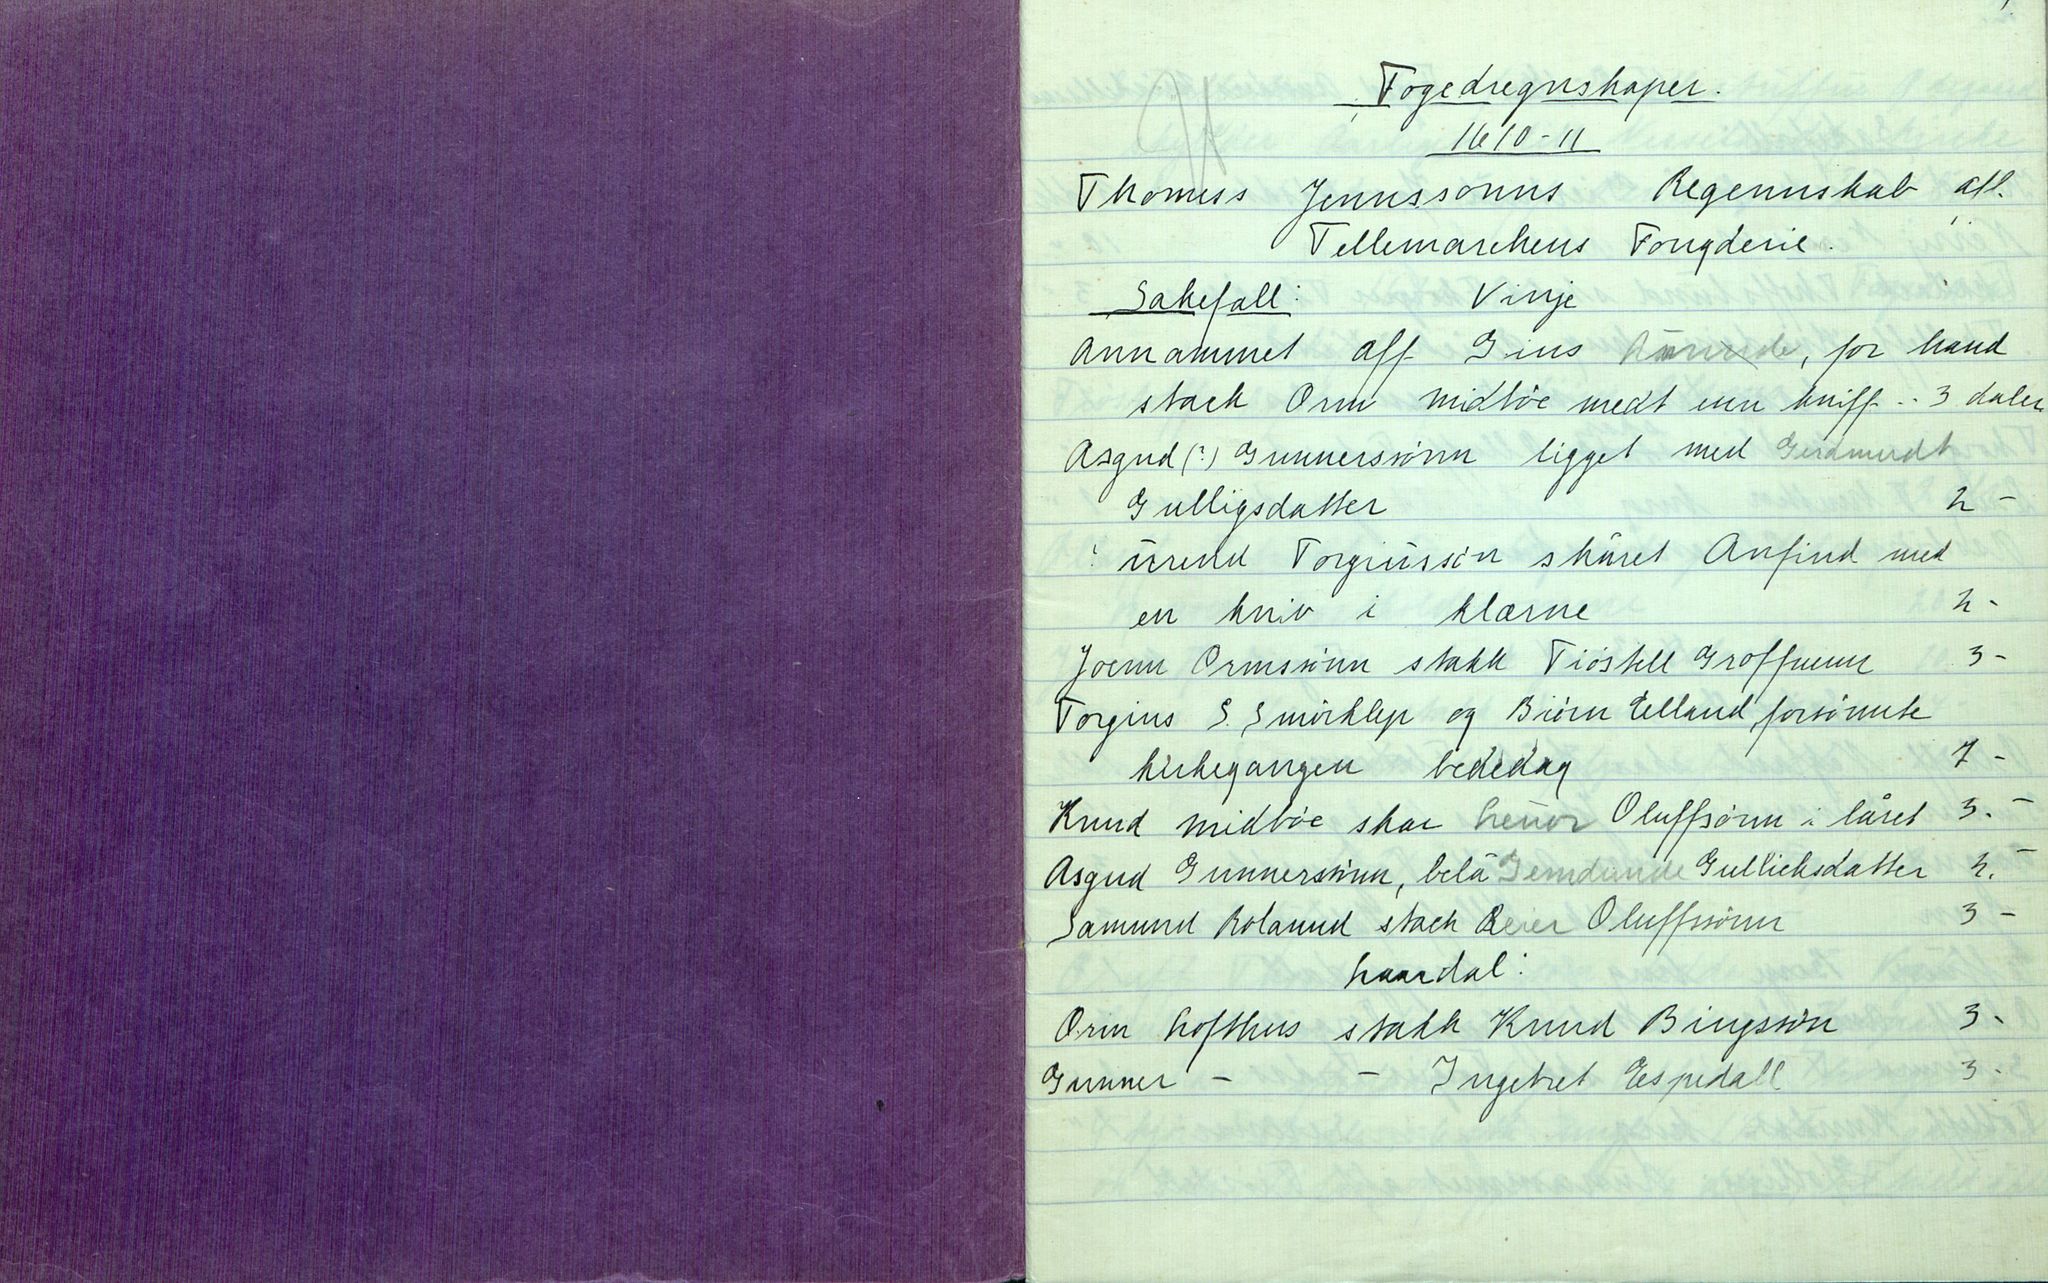 Fogedregnskaper.
1610-11
Thomess Jennssonns Regennskab aff.
Tellemarckens Fougderie.
Sakefall: Vinje
Annammet aff Gius for hand
stack Orm Midböe medt enn kniff .. 3 daler
Asgud (?) Gunnerssönn ligget med
Gulligsdatter 2 -
? Torgiussön skåret Anfind med
en kniv i klærne 2 -
Joenn Ormssönn stakk Tiöstell Groffuenn 3 -
Torgius S. Smörklep og Biörn Eelland forsömte
kirkegangen bededag 7 -
Knud Midböe skar Oluffsönn i låret 3. -
Asgud Gunnersönn, belå Gullicksdatter 2. -
Samund Rolannd stack Reier Oluffssönn 3 -
haardal:
Orm Lofthus stakk Knud Bingssön 3 -
Gunner - - Ingebret Espedall 3 -